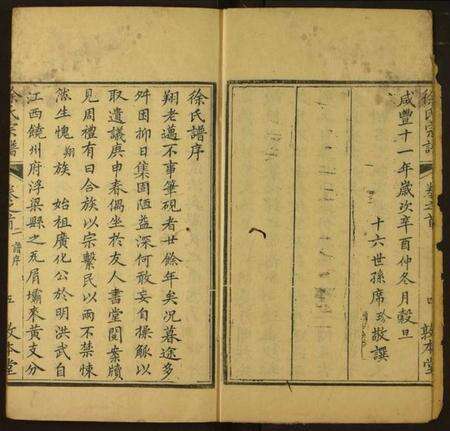 徐氏宗譜
卷之首
四
敦本堂
咸豐十一年歲次辛酉仲冬月穀旦
十六世孫席珍敬譔
徐氏譜序
翔老邁不事筆硯者廿餘年矣況暮途多
舛困抑日集固陋益深何敢妄自操觚以
取遺議庚申春偶坐於友人書堂閱案牘
見周禮有曰合族以宗繫民以兩不禁悚
然生愧翔族 始祖廣化公於明洪武自
江西饒州府浮梁縣之瓦屑壩來黃支分
徐氏宗譜
卷之首
二譜序
五
敦本堂